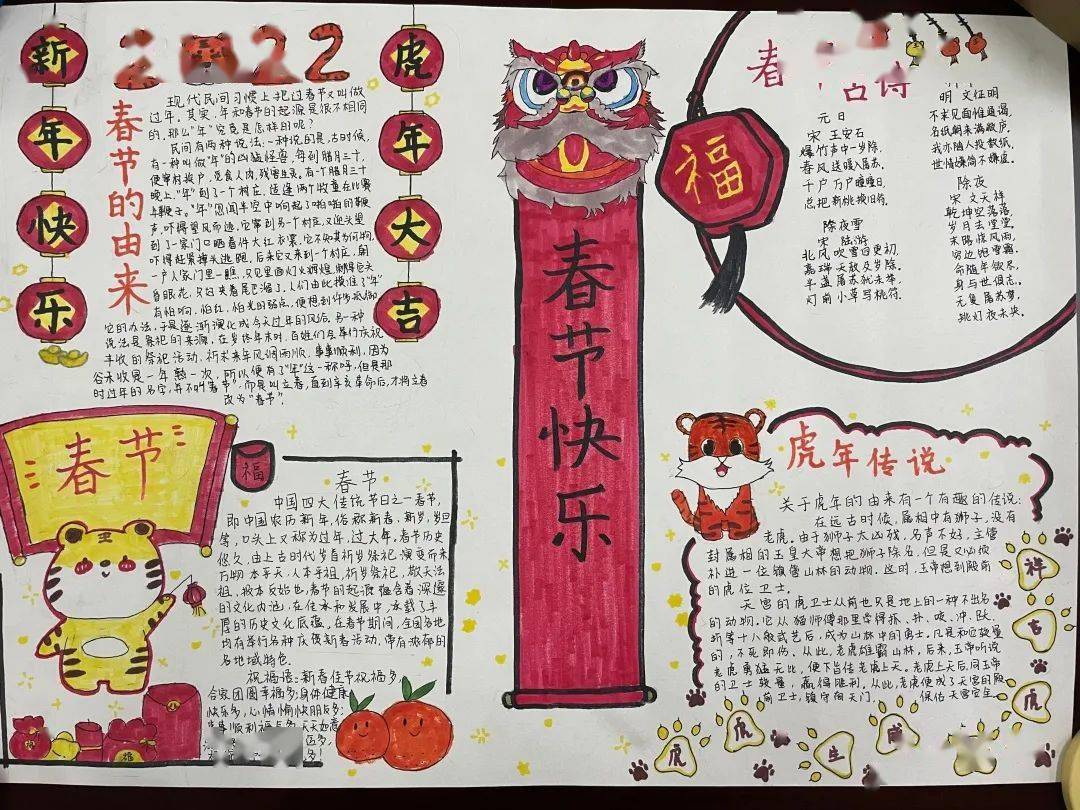 新年快乐
2022
虎年大吉
春节的由来
现代民间习惯上把过春节又叫做
过年。其实,年和春节的起源是很不相同
的。那么"年"究竟是怎样的呢?
民间有两种说法:一种说的是,古时候,
有一种叫做"年"的凶猛怪兽,每到腊月三十,
便窜村挨户,觅食人肉,残害生灵。有一个腊月三十
晚上,"年"到了一个村庄,适逢两个牧童在比赛
牛鞭子。"年"忽闻半空中响起了啪啪的鞭
声,吓得望风而逃。它窜到另一个村庄,又迎头望
到了一家门口晒着件大红衣裳,它不知其为何物,
吓得赶紧掉头逃跑。后来它又来到一个村庄,朝
一户人家门里一瞧,只见里面灯火辉煌,刺得它头
昏眼花,只好夹着尾巴溜了。人们由此摸准了"年"
有怕响,怕红,怕光的弱点,便想到许多抵御
它的办法,于是逐渐演化成今天过年的风俗。另一种
说法是祭祀的来源,在岁终年末时,百姓们会举行庆祝
丰收的祭祀活动,祈求来年风调雨顺,事事顺利,因为
谷禾收是一年熟一次,所以便有了"年"这一称呼,但是那
时过年的名字,并不叫"春节",而是叫立春,直到辛亥革命后,才将立春
改为"春节"。
春节快乐
春
古诗
福
元日
宋 王安石
爆竹声中一岁除,
春风送暖入屠苏。
千户万户曈曈日,
总把新桃换旧符。
除夜雪
宋 陆游
北风吹雪四更初,
嘉瑞天教及岁除。
半盏屠苏犹未举,
灯前小草写桃符。
明 文征明
不求见面惟通谒,
名纸朝来满敝庐。
我亦随人投数纸,
世情嫌简不嫌虚。
除夜
宋 文天祥
乾坤空落落,
岁月去堂堂。
末路惊风雨,
穷边饱雪霜。
命随年欲尽,
身与世俱忘。
无复屠苏梦,
挑灯夜未央。
春节
福
春节
中国四大传统节日之一春节,
即中国农历新年,俗称新春、新岁、岁旦
等,口头上又称为过年、过大年。春节历史
悠久,由上古时代岁首祈岁祭祀演变而来
万物本乎天,人本乎祖,祈岁祭祀,敬天法
祖,报本反始也。春节的起源蕴含着深邃
的文化内涵,在传承和发展中,承载了丰
厚的历史文化底蕴。在春节期间,全国各地
均有举行各种庆贺新春活动,带有浓郁的
各地域特色。
祝福语:新春佳节祝福多,
合家团圆幸福多;身体健康
快乐多,心情愉快朋友多;
事顺利福气多,天天如意
福
虎年传说
关于虎年的由来有一个有趣的传说:
在远古时候,属相中有狮子,没有
老虎。由于狮子太凶残,名声不好,主管
封属相的玉皇大帝想把狮子除名,但是又必须
补进一位镇管山林的动物。这时,玉帝想到殿前
的虎位卫士。
天宫的虎卫士从前也只是地上的一种不出名
的动物。它从猫师傅那里学得抓、扑、咬、冲、跃、
折等十八般武艺后,成为山林中的勇士,凡是和它较量
的,不死即伤。从此,老虎雄霸山林。后来,玉帝听说
老虎勇猛无比,便下旨传老虎上天。老虎上天后,同玉帝
的卫士较量,赢得胜利。从此,老虎便成了天宫的殿
前卫士,镇守南天门,保佑天宫安全
祥
吉
虎
虎
虎
生
威